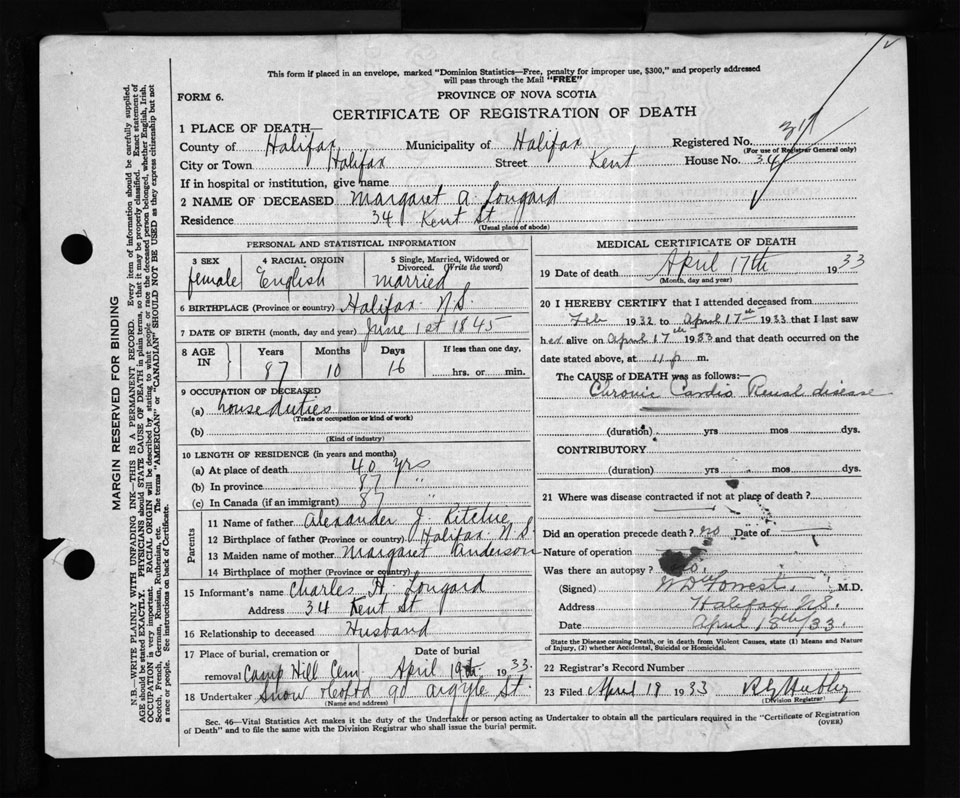 This form if placed in an envelope, marked "Dominion Statistics—Free, penalty for improper use, $300," and properly addressed
will pass through the Mail "FREE"
FORM 6.
PROVINCE OF NOVA SCOTIA
CERTIFICATE OF REGISTRATION OF DEATH
1 PLACE OF DEATH—
County of Halifax Municipality of Halifax Registered No.
(For use of Registrar General only)
City or Town Halifax Street Kent House No. 34
If in hospital or institution, give name
2 NAME OF DECEASED Margaret A. Longard
Residence 34 Kent St
(Usual place of abode)
PERSONAL AND STATISTICAL INFORMATION
3 SEX 4 RACIAL ORIGIN 5 Single, Married, Widowed or
Divorced. (Write the word)
female English married
6 BIRTHPLACE (Province or country) Halifax N.S.
7 DATE OF BIRTH (month, day and year) June 1st 1845
8 AGE IN Years Months Days If less than one day,
87 10 16 hrs. or min.
9 OCCUPATION OF DECEASED
(a) house duties
(Trade or occupation or kind of work)
(b)
(Kind of industry)
10 LENGTH OF RESIDENCE (in years and months)
(a) At place of death 40 yrs
(b) In province 87 "
(c) In Canada (if an immigrant) 87 "
Parents
11 Name of father Alexander J. Ritchie
12 Birthplace of father (Province or country) Halifax N.S.
13 Maiden name of mother Margaret Anderson
14 Birthplace of mother (Province or country)
15 Informant's name Charles H. Longard
Address 34 Kent St
16 Relationship to deceased Husband
17 Place of burial, cremation or Date of burial
removal Camp Hill Cem April 19th 1933.
18 Undertaker Snow & Co Ltd 90 Argyle St.
(Name and address)
MEDICAL CERTIFICATE OF DEATH
19 Date of death April 17th 1933
(Month, day and year)
20 I HEREBY CERTIFY that I attended deceased from
Feb 1932 to April 17th 1933 that I last saw
her alive on April 17th 1933 and that death occurred on the
date stated above, at 11 p m.
The CAUSE of DEATH was as follows:—
Chronic Cardio Renal disease
(duration) yrs mos dys.
CONTRIBUTORY
(duration) yrs mos dys.
21 Where was disease contracted if not at place of death?
Did an operation precede death? no Date of
Nature of operation
Was there an autopsy? no.
(Signed) W D Forrest. M.D.
Address Halifax N.S.
Date April 18th/33.
State the Disease causing Death, or in death from Violent Causes, state (1) Means and Nature
of Injury, (2) whether Accidental, Suicidal or Homicidal.
22 Registrar's Record Number
23 Filed April 19 1933
(Division Registrar)
Sec. 46—Vital Statistics Act makes it the duty of the Undertaker or person acting as Undertaker to obtain all the particulars required in the "Certificate of Registration
of Death" and to file the same with the Division Registrar who shall issue the burial permit. (OVER)
MARGIN RESERVED FOR BINDING
N.B.—WRITE PLAINLY WITH UNFADING INK—THIS IS A PERMANENT RECORD. Every item of information should be carefully supplied.
AGE should be stated EXACTLY. PHYSICIANS should STATE CAUSE OF DEATH in plain terms, so that it may be properly classified. Exact statement of
OCCUPATION is very important. RACIAL ORIGIN will be described by stating to what people or race the deceased person belonged, whether English, Irish,
Scotch, French, German, Russian, Ruthenian, etc. The terms "AMERICAN" or "CANADIAN" SHOULD NOT BE USED as they express citizenship but not
a race or people. See instructions on back of Certificate.